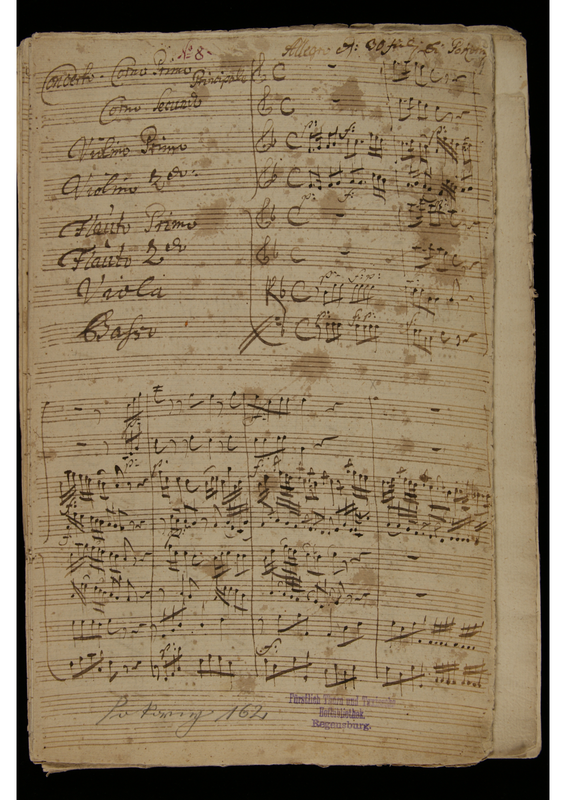 No 8.
Allegro
Concerto. Corno Primo Principale
Corno Secundo
Violino Primo
Violino 2do:
Flauto Primo
Flauto 2do
Viola
Basso
Pokorny 162
Fürstlich Thurn und Taxissche
Hofbibliothek.
Regensburg.